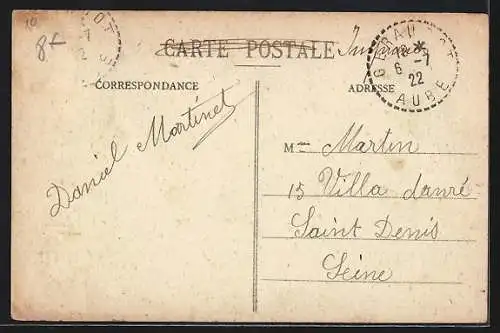 8f
CARTE POSTALE Imprimés
CORRESPONDANCE
ADRESSE
GERAUDOT
18 *
6 -7
22
AUBE
Daniel Martinet
Mme Martin
15 Villa
Saint Denis
Seine